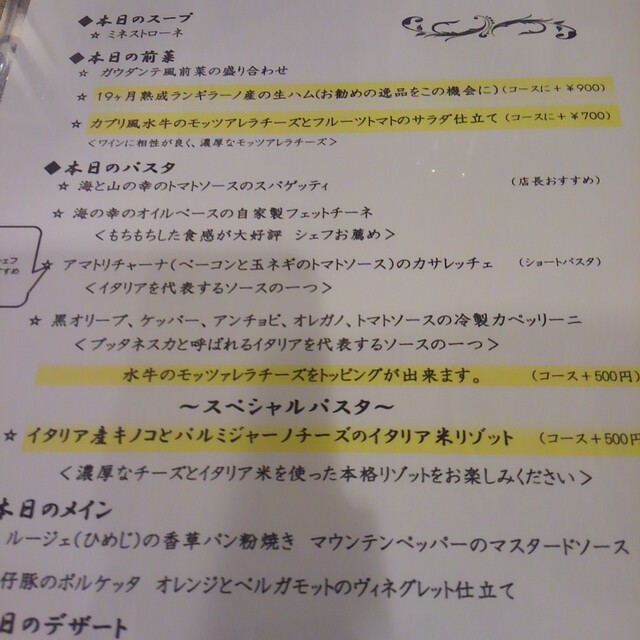 ◆本日のスープ
☆ ミネストローネ
◆本日の前菜
☆ ガウダンテ風前菜の盛り合わせ
☆ 19ヶ月熟成ランギラーノ産の生ハム(お勧めの逸品をこの機会に)(コースに+¥900)
☆ カプリ風水牛のモッツアレラチーズとフルーツトマトのサラダ仕立て (コースに+¥700)
<ワインに相性が良く、濃厚なモッツアレラチーズ>
◆本日のパスタ
☆ 海と山の幸のトマトソースのスパゲッティ (店長おすすめ)
☆ 海の幸のオイルベースの自家製フェットチーネ
<もちもちした食感が大好評 シェフお薦め>
☆ アマトリチャーナ(ベーコンと玉ネギのトマトソース)のカサレッチェ (ショートパスタ)
<イタリアを代表するソースの一つ>
☆ 黒オリーブ、ケッパー、アンチョビ、オレガノ、トマトソースの冷製カペッリーニ
<プッタネスカと呼ばれるイタリアを代表するソースの一つ>
水牛のモッツァレラチーズをトッピングが出来ます。 (コース+500円)
～スペシャルパスタ～
☆ イタリア産キノコとパルミジャーノチーズのイタリア米リゾット (コース+500円
<濃厚なチーズとイタリア米を使った本格リゾットをお楽しみください>
本日のメイン
ルージェ(ひめじ)の香草パン粉焼き マウンテンペッパーのマスタードソース
仔豚のポルケッタ オレンジとベルガモットのヴィネグレット仕立て
日のデザート